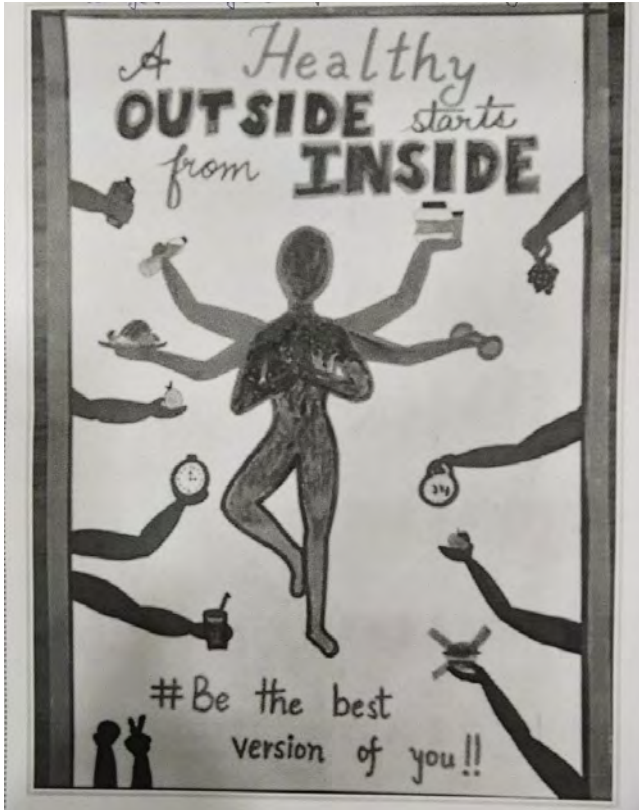 A Healthy
OUTSIDE starts
from INSIDE
#Be the best
version of you!!